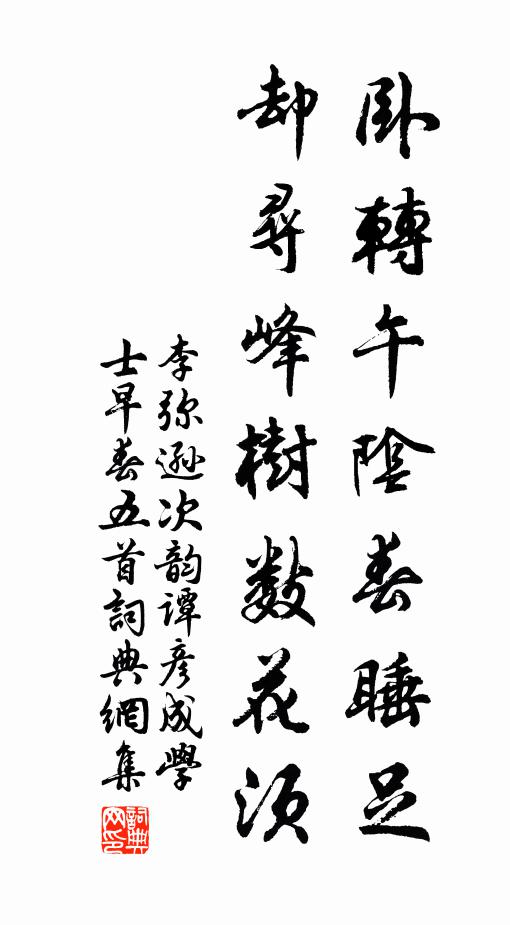 卧轉午陰春睡足
却尋峰樹數花須
李弥遜次韵譚彦成學
士早春五首詞典網集
詞典
网印